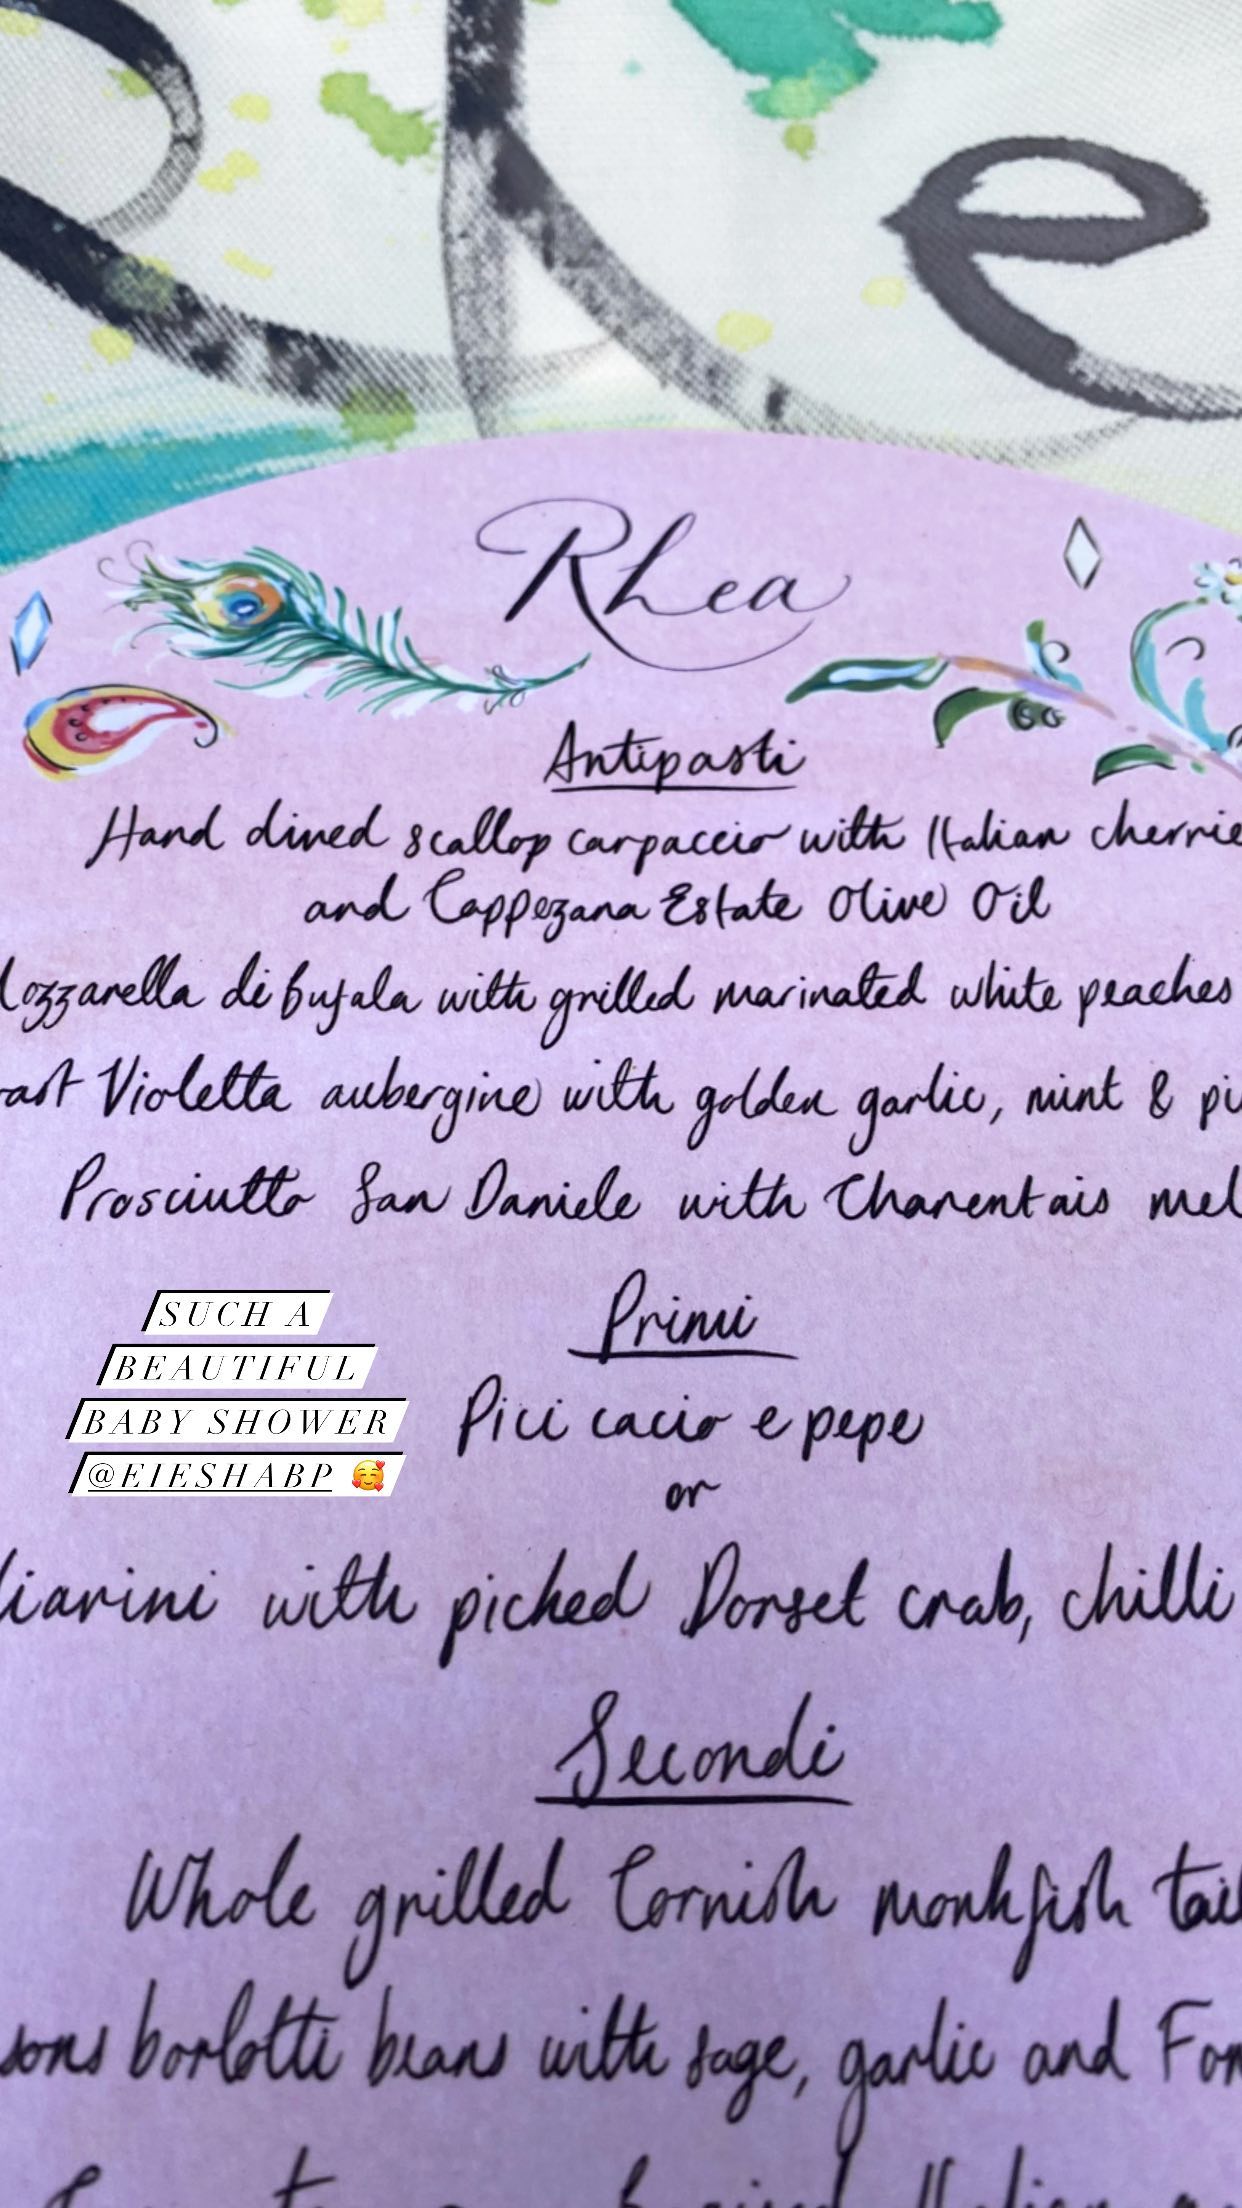 Rhea
Antipasti
Hand dived scallop carpaccio with Italian cherrie
and Cappezana Estate Olive Oil
Mozzarella di bufala with grilled marinated white peaches
Violetta aubergine with golden garlic, mint & pi
Prosciutto San Daniele with Charentais mel
SUCH A
BEAUTIFUL
BABY SHOWER
@EIESHABP 🥰
Primi
Pici cacio e pepe
or
liarini with picked Dorset crab, chilli
Secondi
Whole grilled Cornish monkfish tail
sons borlotti beans with sage, garlic and For